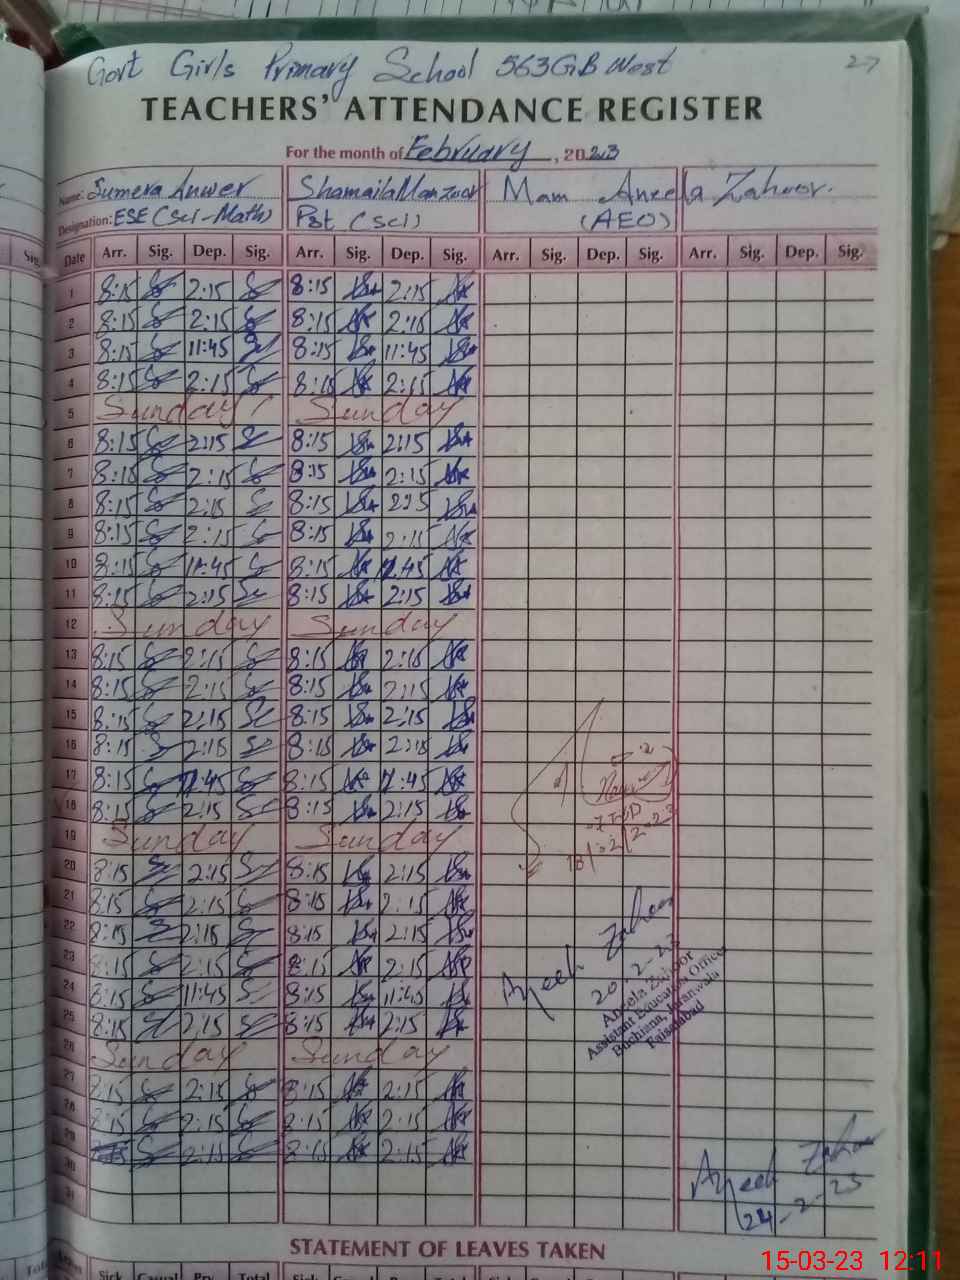 Govt Girls Primary School 563GB West 27
TEACHERS' ATTENDANCE REGISTER
For the month of February, 2023
Name: Sumera Anwer Shamaila Manzoor Mam Aneela Zahoor.
Designation: ESE (Sci-Math) Pst (Sci) (AEO)
Date Arr. Sig. Dep. Sig. Arr. Sig. Dep. Sig. Arr. Sig. Dep. Sig. Arr. Sig. Dep. Sig.
1 8:15 2:15 8:15 2:15
2 8:15 2:15 8:15 2:15
3 8:15 11:45 8:15 11:45
4 8:15 2:15 8:15 2:15
5 Sunday Sunday
6 8:15 2:15 8:15 2:15
7 8:15 2:15 8:15 2:15
8 8:15 2:15 8:15
9 8:15 2:15 8:15 2:15
10 8:15 11:45 8:15
11 8:15 2:15 8:15 2:15
12 Sunday Sunday
13 8:15 2:15 8:15 2:15
14 8:15 2:15 8:15 2:15
15 8:15 2:15 8:15 2:15
16 8:15 2:15 8:15 2:15
17 8:15 8:15
18 8:15 2:15 8:15 2:15
19 Sunday Sunday
20 8:15 2:15 8:15 2:15
21 8:15 2:15 8:15 2:15
22 8:15 2:15 8:15 2:15
23 8:15 2:15 8:15 2:15
24 8:15 11:45 8:15 11:45
25 8:15 2:15 8:15 2:15
26 Sunday Sunday
27 2:15 8:15 2:15
28 8:15 2:15 8:15 2:15
29 2:15 8:15 2:15
30
31
Aneela Zahoor
20-2-23
Aneela Zahoor
Assistant Education Officer
Buchiana, Jaranwala
Faisalabad
Aneela Zahoor
24-2-23
STATEMENT OF LEAVES TAKEN
Sick Casual Prv. Total
15-03-23 12:11